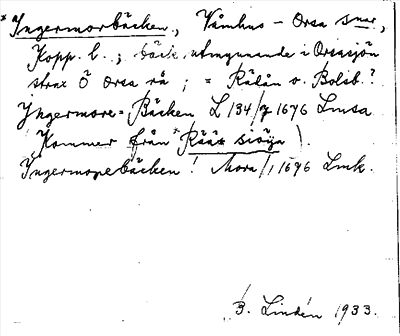 * Yngermorbäcken, Våmhus - Orsa snar,
Kopp. l.; bäck, utmynnande i Orsasjön
strax Ö Orsa rå; = Rälån v. Bolsb.?
Yngermore = Bäcken L 134/7 1676 Lmsa
Kommer från * Rääs siöya).
Yngermorebäcken! Mora/1 1676 Lmk.
B. Lindén 1933.